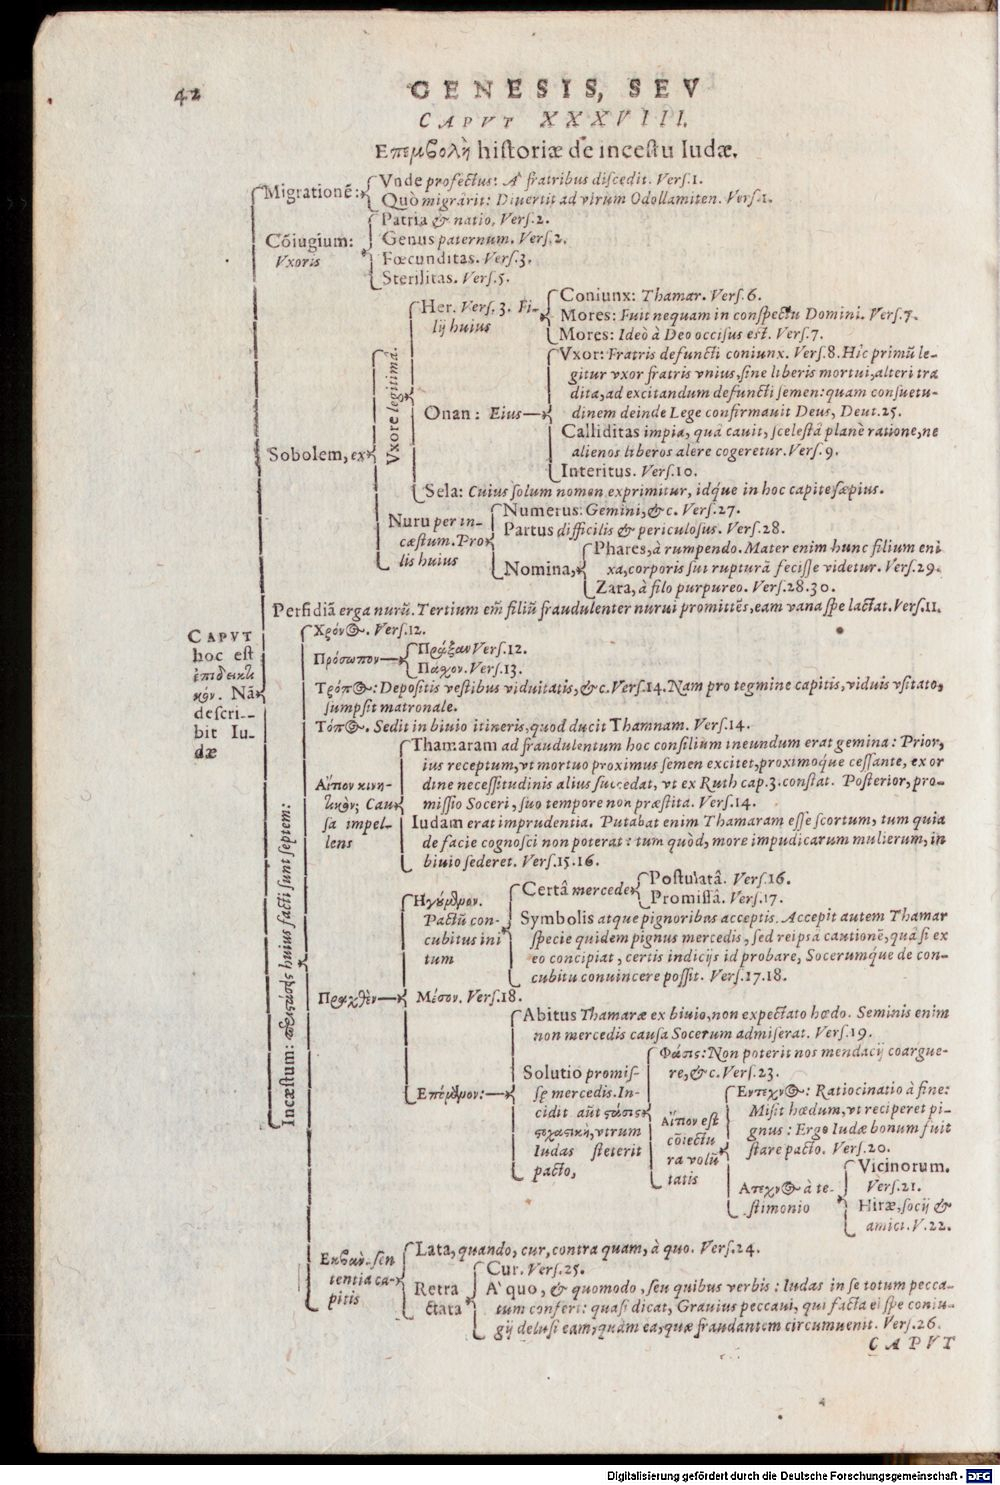 42
GENESIS, SEV
CAPVT XXXVIII.
Επεμβολὴ historiæ de incestu Iudæ.
CAPVT
hoc est
ἐπιδεικτι
κόν. Nā
descri-
bit Iu-
dæ
Migrationē:
Vnde profectus: A fratribus discedit. Vers.1.
Quò migrârit: Divertit ad virum Odollamiten. Vers.1.
Cōiugium:
Vxoris
Patria & natio, Vers.2.
Genus paternum. Vers.2.
Fœcunditas. Vers.3.
Sterilitas. Vers.5.
Sobolem, ex
Vxore legitimâ.
Her. Vers. 3. Fi-
lij huius
Coniunx: Thamar. Vers.6.
Mores: Fuit nequam in conspectu Domini. Vers.7.
Mores: Ideò à Deo occisus est. Vers.7.
Onan: Eius
Vxor: Fratris defuncti coniunx. Vers.8. Hîc primū le-
gitur vxor fratris vnius, sine liberis mortui, alteri tra
dita, ad excitandum defuncti semen: quam consuetu-
dinem deinde Lege confirmauit Deus, Deut.25.
Calliditas impia, quâ cauit, scelestâ planè ratione, ne
alienos liberos alere cogeretur. Vers.9.
Interitus. Vers.10.
Sela: Cuius solum nomen exprimitur, idque in hoc capite sæpius.
Nuru per in-
cæstum. Pro
lis huius
Numerus: Gemini, &c. Vers.27.
Partus difficilis & periculosus. Vers.28.
Nomina,
Phares, à rumpendo. Mater enim hunc filium eni
xa, corporis sui rupturā fecisse videtur. Vers.29.
Zara, à filo purpureo. Vers.28.30.
Perfidiā erga nurū. Tertium em̄ filiū fraudulenter nurui promittēs, eam vana spe lactat. Vers.11.
Incæstum: περιστάσεις huius facti sunt septem:
Χρόνος. Vers.12.
Πρόσωπον
Πράξαν Vers.12.
Πάσχον. Vers.13.
Τρόπος: Depositis vestibus viduitatis, &c. Vers.14. Nam pro tegmine capitis, viduis vsitato,
sumpsit matronale.
Τόπος. Sedit in biuio itineris, quod ducit Thamnam. Vers.14.
Αἴτιον κινη-
τικὸν; Cau
sa impel-
lens
Thamaram ad fraudulentum hoc consilium ineundum erat gemina: Prior,
ius receptum, vt mortuo proximus semen excitet, proximoque cessante, ex or
dine necessitudinis alius succedat, vt ex Ruth cap.3. constat. Posterior, pro-
missio Soceri, suo tempore non præstita. Vers.14.
Iudam erat imprudentia. Putabat enim Thamaram esse scortum, tum quia
de facie cognosci non poterat: tum quòd, more impudicarum mulierum, in
biuio sederet. Vers.15.16.
Πραχθὲν
Ηγούμενον.
Pactū con-
cubitus ini
tum
Certâ mercede
Postulatâ. Vers.16.
Promissâ. Vers.17.
Symbolis atque pignoribus acceptis. Accepit autem Thamar
specie quidem pignus mercedis, sed reipsâ cautionē, quâ si ex
eo concipiat, certis indicijs id probare, Socerumque de con-
cubitu conuincere possit. Vers.17.18.
Μέσον. Vers.18.
Επόμενον:
Abitus Thamaræ ex biuio, non expectato hœdo. Seminis enim
non mercedis causa Socerum admiserat. Vers.19.
Solutio promis-
sę mercedis. In-
cidit aūt στάσις
στοχαστικὴ, vtrum
Iudas steterit
pacto,
Φάσις: Non poterit nos mendacij coargue-
re, &c. Vers.23.
Αἴτιον est
cōiectu
ra volū
tatis
Εντεχνος: Ratiocinatio à fine:
Misit hœdum, vt reciperet pi-
gnus: Ergo Iudæ bonum fuit
stare pacto. Vers.20.
Ατεχνος à te-
stimonio
Vicinorum.
Vers.21.
Hiræ, socij &
amici. V.22.
Εκβὰν. sen
tentia ca-
pitis
Lata, quando, cur, contra quam, à quo. Vers.24.
Retra
ctata
Cur. Vers.25.
A' quo, & quomodo, seu quibus verbis: Iudas in se totum pecca-
tum confert: quasi dicat, Grauius peccaui, qui facta ei spe coniu-
gij delusi eam, quàm ea, quæ fraudantem circumuenit. Vers.26.
CAPVT
Digitalisierung gefördert durch die Deutsche Forschungsgemeinschaft - DFG